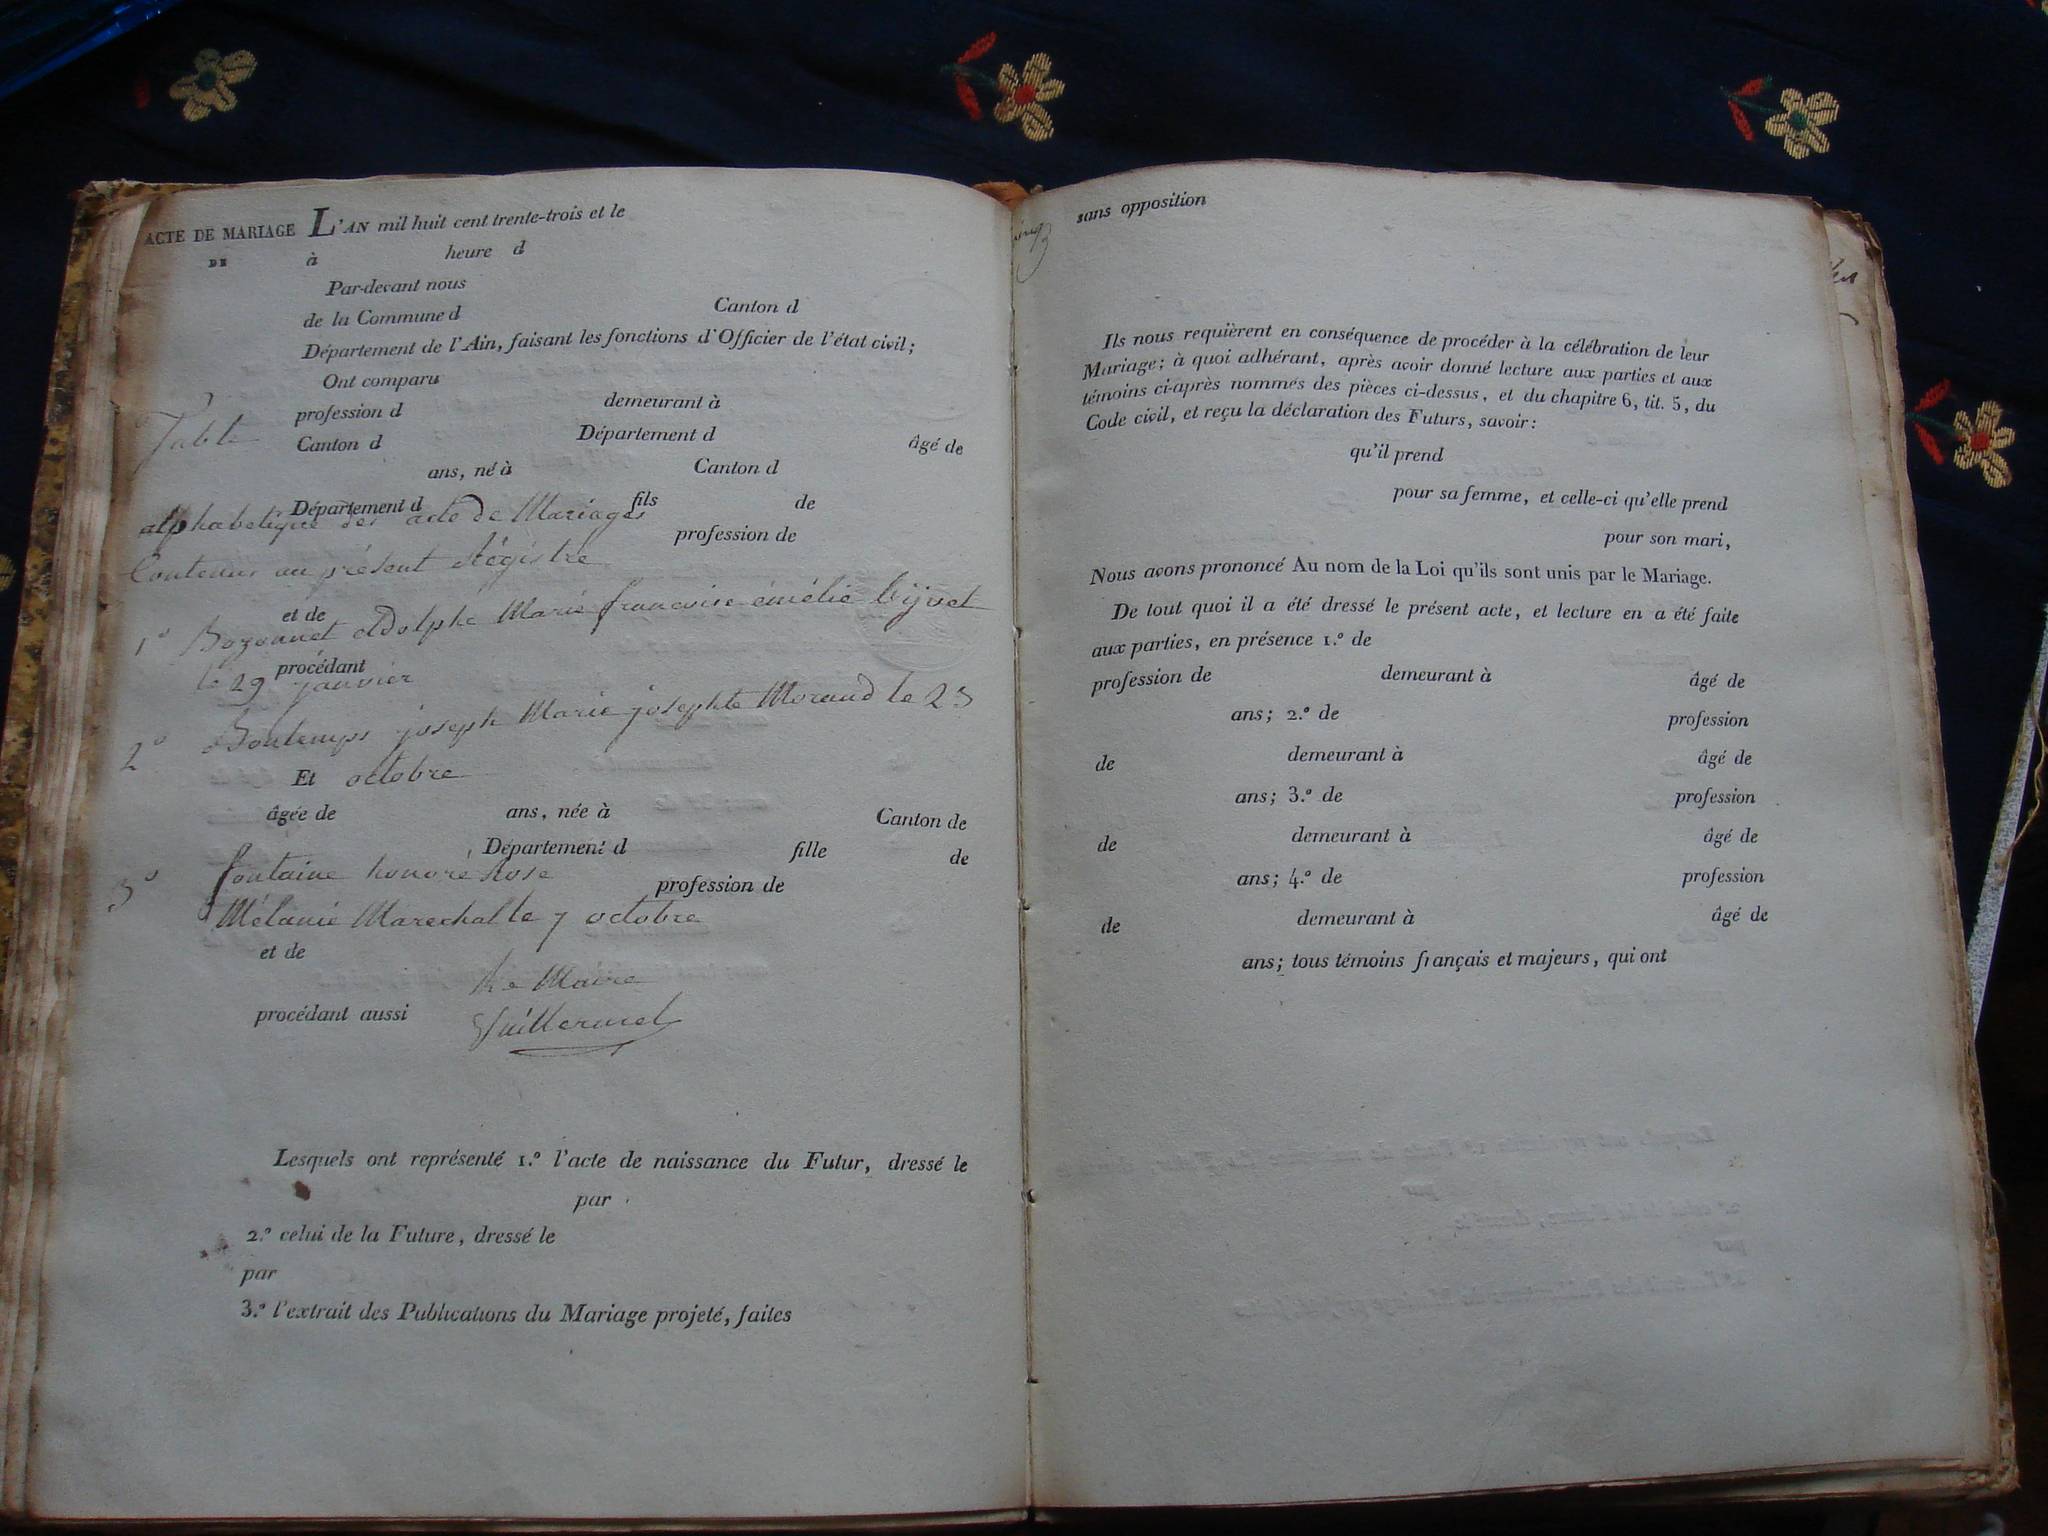 ACTE DE MARIAGE L'AN mil huit cent trente-trois et le
DE à heure d
Par-devant nous
de la Commune d Canton d
Département de l'Ain, faisant les fonctions d'Officier de l'état civil;
Ont comparu
profession d demeurant à
Table
Canton d Département d âgé de
ans, né à Canton d
Département d fils de
alphabetique des acte de Mariages
profession de
Contenus au présent Régistre
et de
1° Bozonnet Adolphe Marie françoise émélie
procédant
le 29 janvier
2° Bontemps joseph Marie josephte Morand le 23
Et octobre
âgée de ans, née à Canton de
Département d fille de
3° fontaine honoré Rose
profession de
Mélanie Marechal le 7 octobre
et de
Le Maire
procédant aussi
Guillermet
Lesquels ont représenté 1.° l'acte de naissance du Futur, dressé le
par
2.° celui de la Future, dressé le
par
3.° l'extrait des Publications du Mariage projeté, faites
sans opposition
Ils nous requièrent en conséquence de procéder à la célébration de leur
Mariage; à quoi adhérant, après avoir donné lecture aux parties et aux
témoins ci-après nommés des pièces ci-dessus, et du chapitre 6, tit. 5, du
Code civil, et reçu la déclaration des Futurs, savoir:
qu'il prend
pour sa femme, et celle-ci qu'elle prend
pour son mari,
Nous avons prononcé Au nom de la Loi qu'ils sont unis par le Mariage.
De tout quoi il a été dressé le présent acte, et lecture en a été faite
aux parties, en présence 1.° de
profession de demeurant à âgé de
ans; 2.° de profession
de demeurant à âgé de
ans; 3.° de profession
de demeurant à âgé de
ans; 4.° de profession
de demeurant à âgé de
ans; tous témoins français et majeurs, qui ont